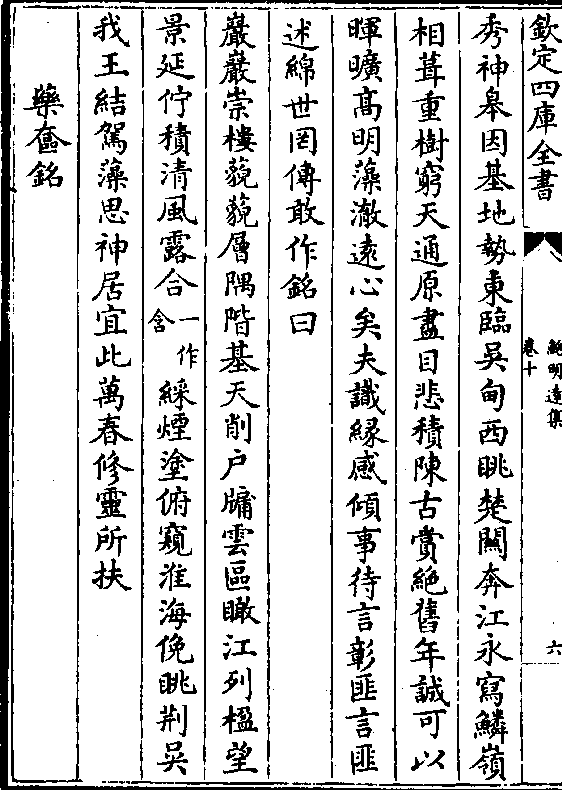 欽定四庫全書
鮑明遠集
卷十
六
秀神皋因基地勢東臨吳甸西眺楚關奔江永寫鱗嶺
相葺重樹窮天通原盡目悲積陳古賞絕舊年誠可以
暉曠髙明藻澈遠心矣夫識緣感傾事待言彰匪言匪
述綿世罔傳敢作銘曰
巖巖崇樓藐藐層隅階基天削户牖雲區瞰江列楹望
景延佇積清風露合一作含綵煙塗俯窺淮海俛眺荆吳
我王結駕藻思神居宜此萬春修靈所扶
藥奩銘